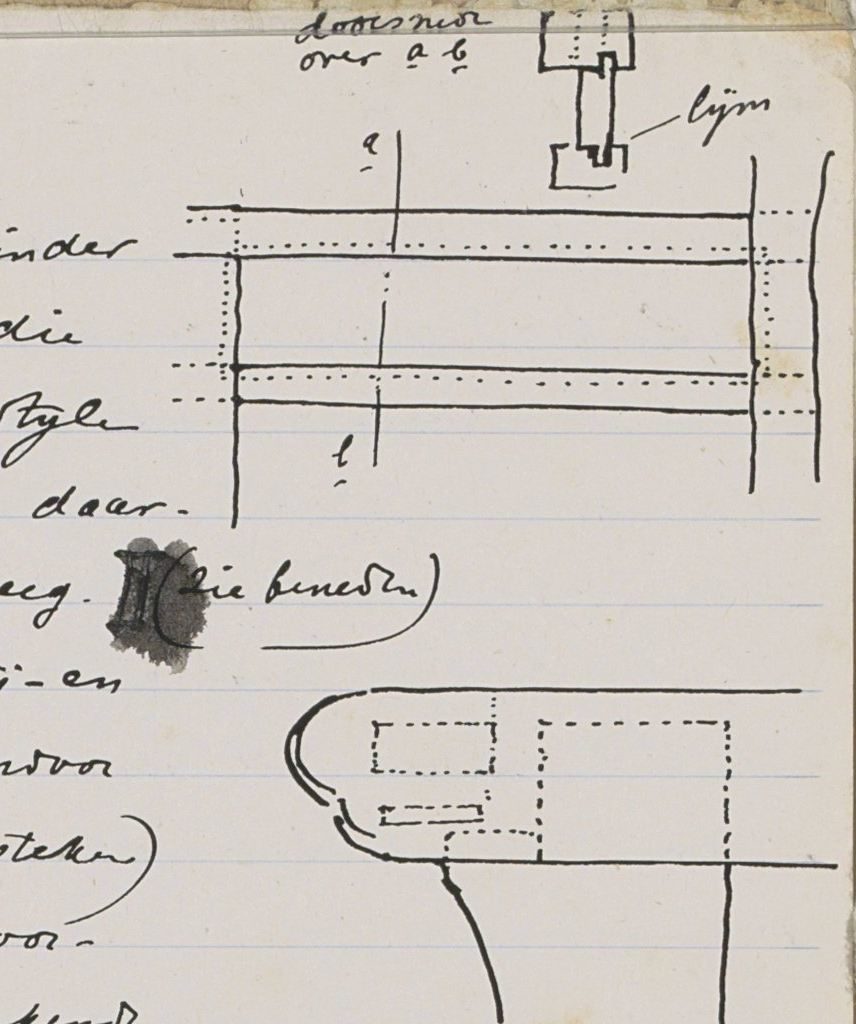 doorsnede
over a b
lijm
a
inder
die
style
b
daar-
eeg. (zie beneden)
ij-en
rdvoor
steken)
voor-